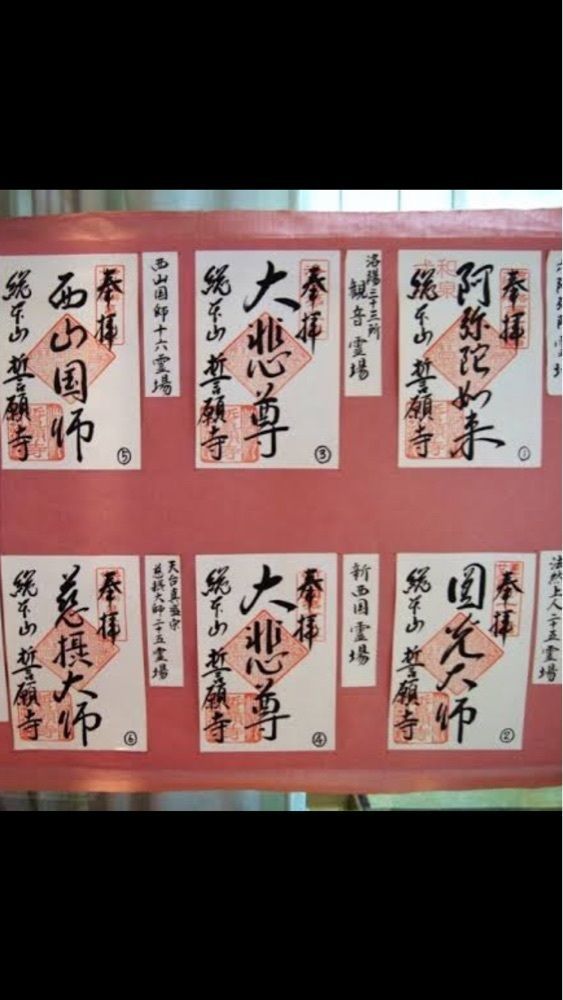 奉拝
阿弥陀如来
総本山 誓願寺
①
洛陽三十三所
観音霊場
奉拝
大悲尊
総本山 誓願寺
③
西山国師十六霊場
奉拝
西山国師
総本山 誓願寺
⑤
法然上人二十五霊場
奉拝
圓光大師
総本山 誓願寺
②
新西国霊場
奉拝
大悲尊
総本山 誓願寺
④
天台真盛宗
慈摂大師二十五霊場
奉拝
慈摂大師
総本山 誓願寺
⑥